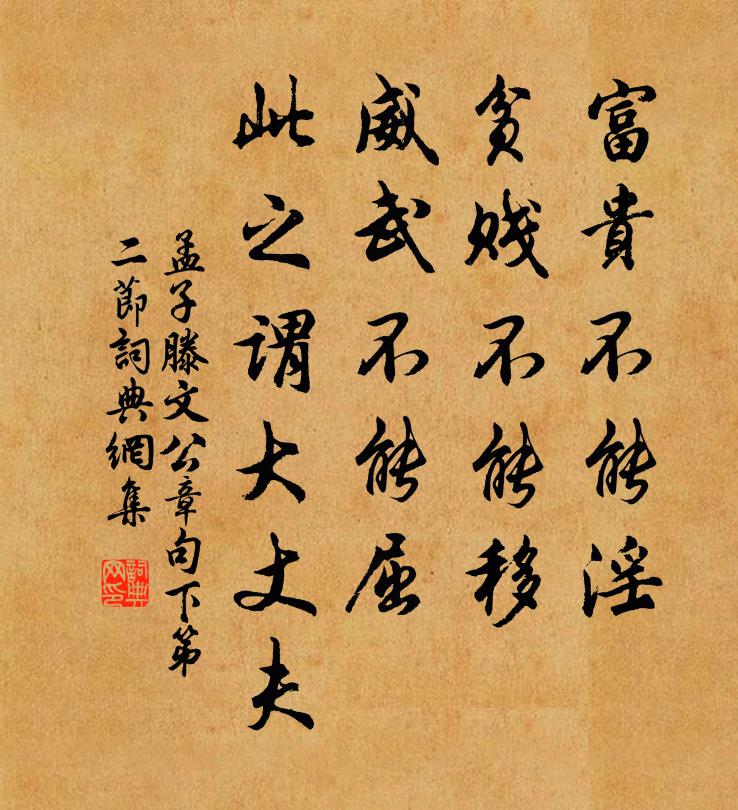 富貴不能淫
貧賤不能移
威武不能屈
此之謂大丈夫
孟子滕文公章句下第
二節詞典網集
詞典
网印